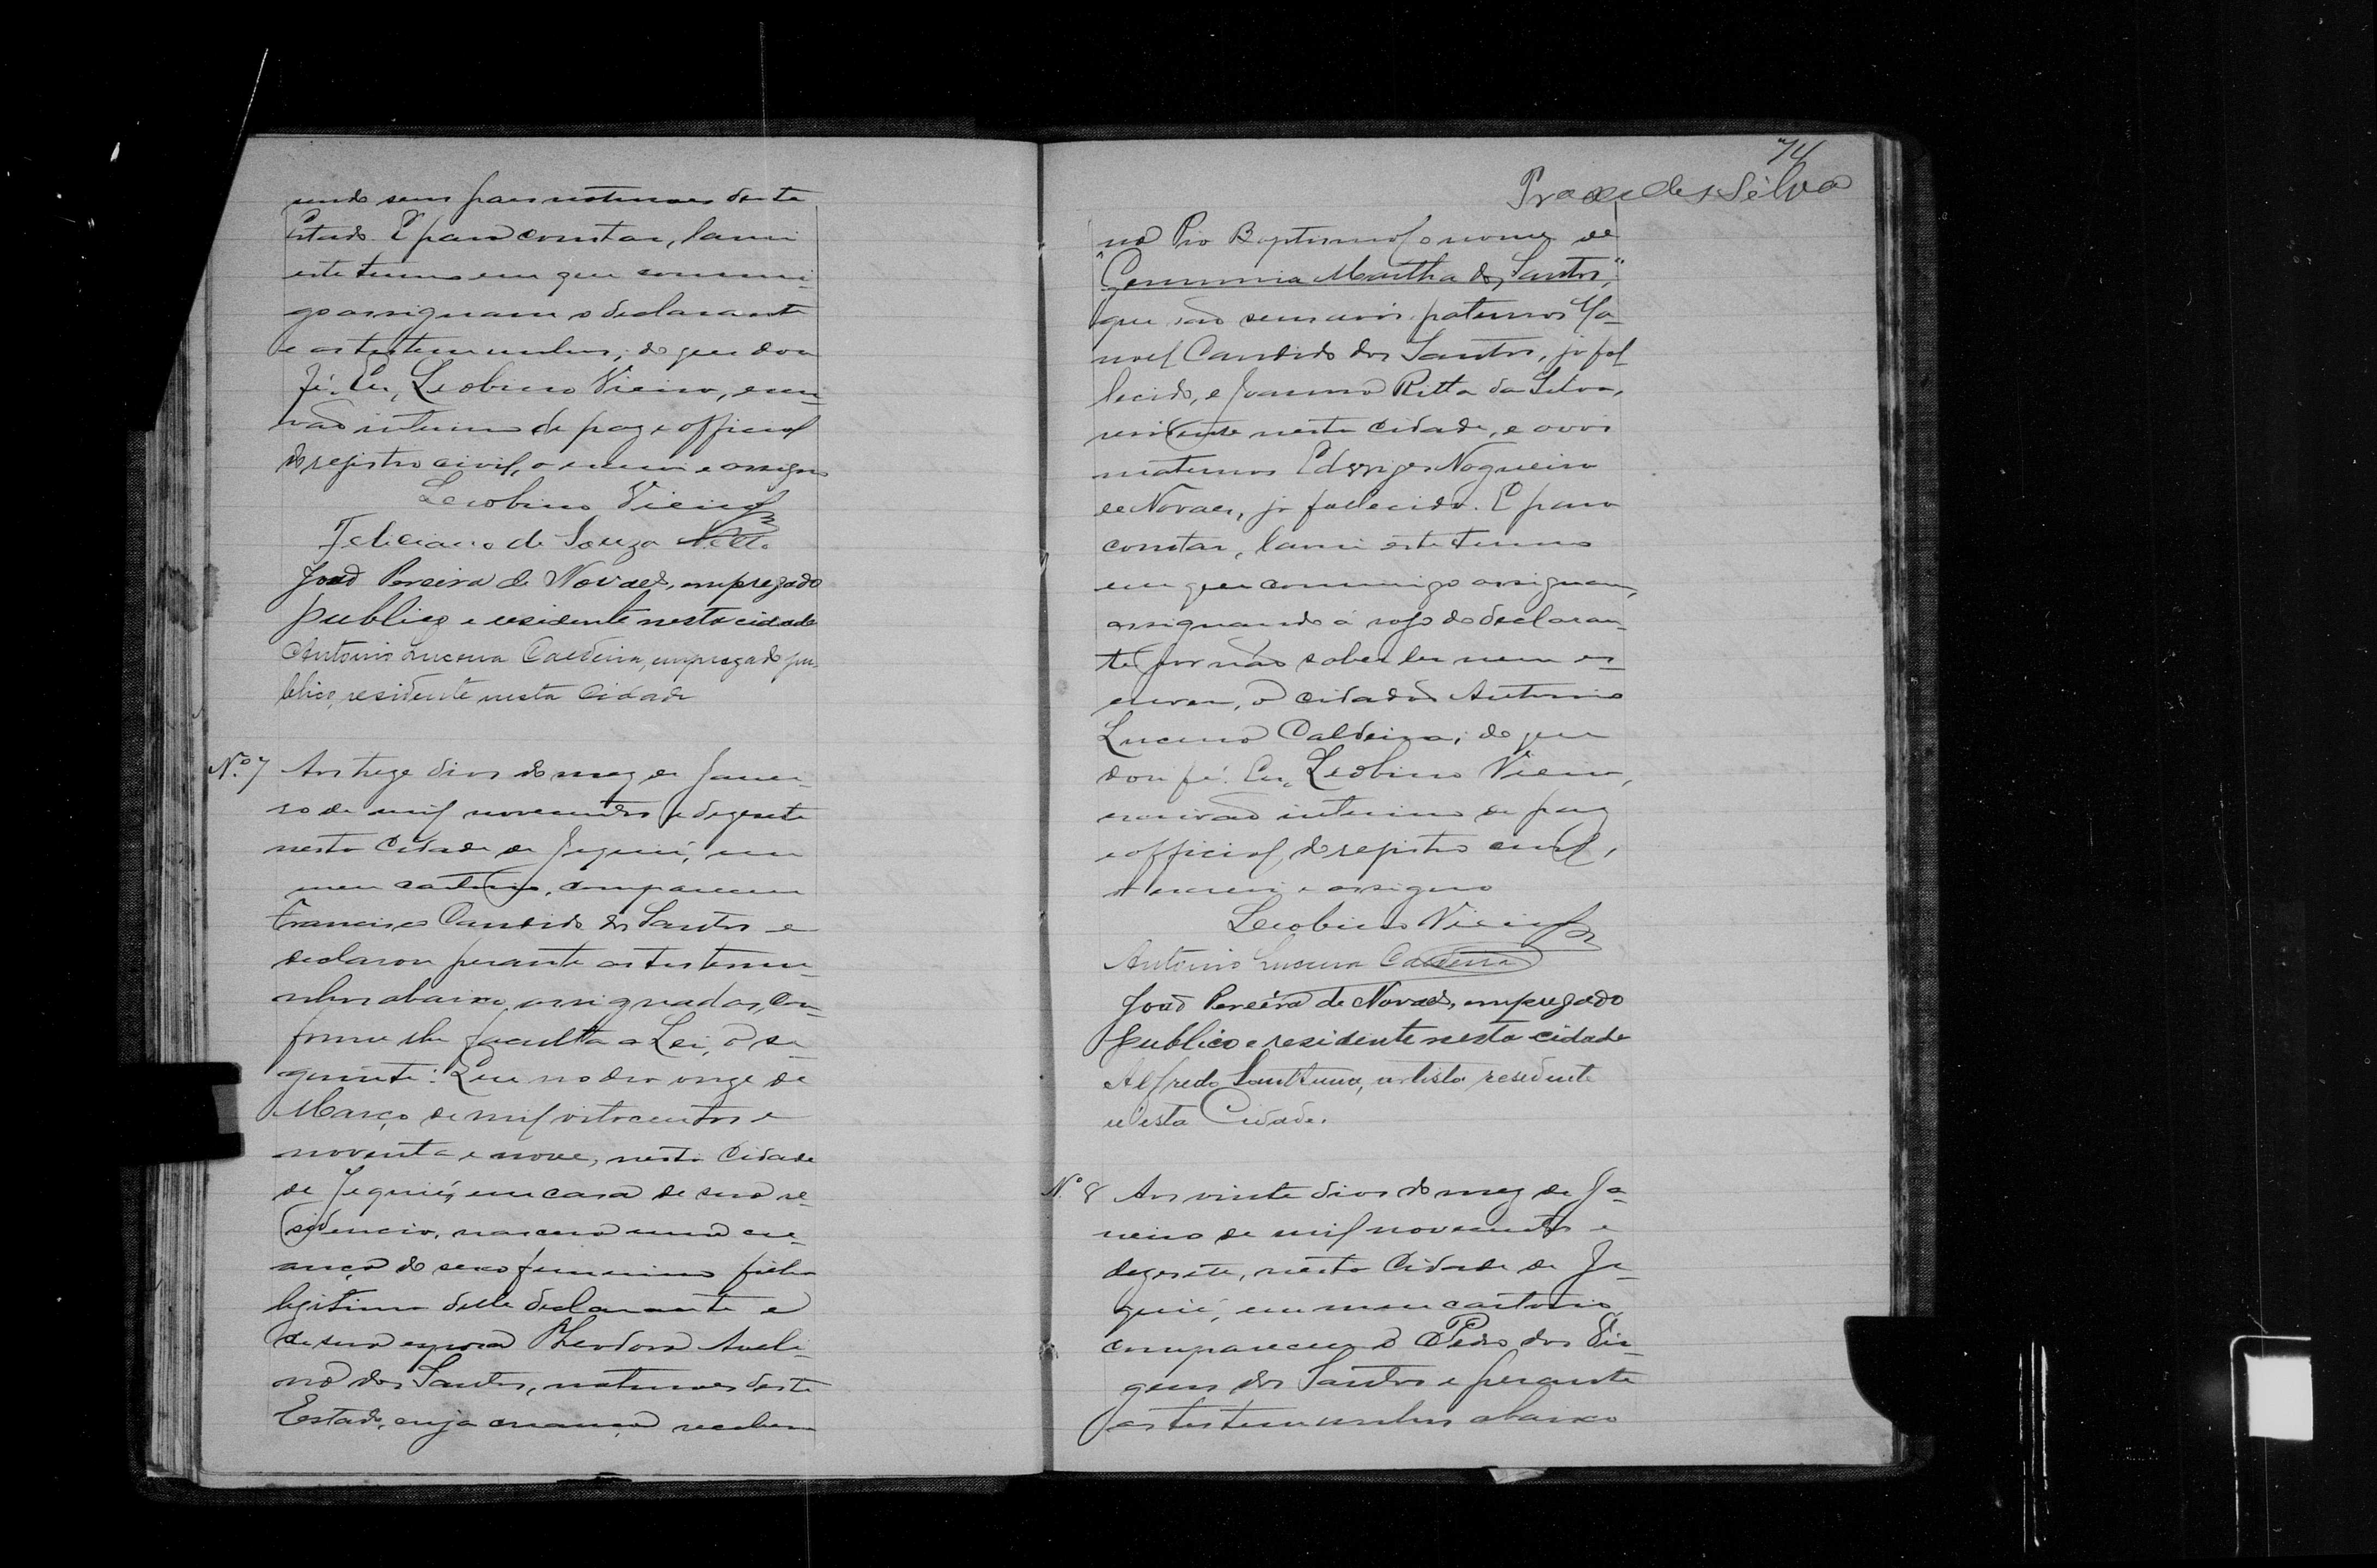 sendo seus paes naturaes deste
Estado. E para constar, lavrei
este termo em que commi-
go assignam o declarante
e as testemunhas; do que dou
fé. Eu, Leobino Vieira, escri-
vão interino de paz e official
do registro civil, o escrevi e assigno
Leobino Vieira
Feliciano de Souza Netto
João Pereira de Novaes, empregado
publico e residente nesta cidade
Antonio Lucena Caldeira, empregado pu-
blico, residente nesta Cidade
Nº 7 Aos treze dias do mez de Janei-
ro de mil novecentos e dezesete
nesta Cidade de Jequié, em
meu cartorio, compareceu
Francisco Candido dos Santos e
declarou perante as testemu-
nhas abaixo assignadas, con-
forme lhe faculta a Lei, o se-
guinte: Que no dia onze de
Março de mil oitocentos e
noventa e nove, nesta Cidade
de Jequié, em casa de sua re-
sidencia, nasceu uma cre-
ança do sexo feminino filha
legitima delle declarante e
de sua esposa Theodora Aveli-
na dos Santos, naturaes deste
Estado, cuja creança recebeu
74
Praxedes Silva
na Pia Baptismal o nome de
"Gemminia Martha dos Santos,"
que são seus avós paternos Ma-
noel Candido dos Santos, já fal-
lecido, e Joanna Ritta da Silva,
residente nesta cidade, e avós
maternos Edwiges Nogueira
de Novaes, já fallecida. E para
constar, lavrei este termo
em que commigo assignam,
assignando á rogo do declaran-
te por não saber ler nem es-
crever, o cidadão Antonio
Lucena Caldeira; do que
dou fé. Eu, Leobino Vieira,
escrivão interino de paz
e official do registro civil,
o escrevi e assigno
Leobino Vieira
Antonio Lucena Caldeira
João Pereira de Novaes, empregado
publico e residente nesta cidade
Alfredo Sant'Anna, artista residente
n'esta Cidade.
Nº 8 Aos vinte dias do mez de Ja-
neiro de mil novecentos e
dezesete, nesta Cidade de Je-
quié, em meu cartorio
compareceu Pedro dos Vir-
gens dos Santos e perante
as testemunhas abaixo